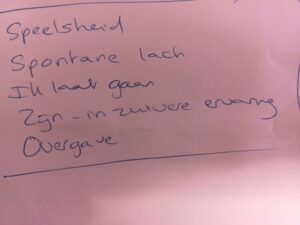 Speelsheid
Spontane lach
Ik laat gaan
Zijn - in zuivere ervaring
Overgave